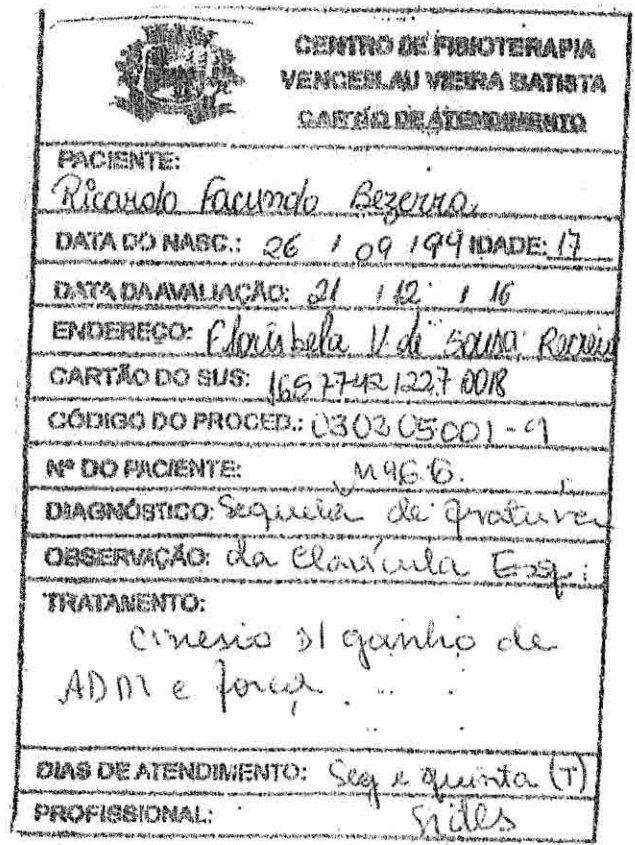 CENTRO DE FISIOTERAPIA
VENCESLAU VIEIRA BATISTA
CARTÃO DE ATENDIMENTO
PACIENTE:
Ricardo Facundo Bezerra
DATA DO NASC.: 26 / 09 / 99 IDADE: 17
DATA DA AVALIAÇÃO: 21 / 12 / 16
ENDEREÇO: Florisbela V. de Sousa Recreio
CARTÃO DO SUS:
CÓDIGO DO PROCED.:
Nº DO PACIENTE:
DIAGNÓSTICO: Sequela de fratura
OBSERVAÇÃO: da Clavícula Esq.
TRATAMENTO:
Cinesio p/ ganho de
ADM e força.
DIAS DE ATENDIMENTO: Seg e quinta (T)
PROFISSIONAL: